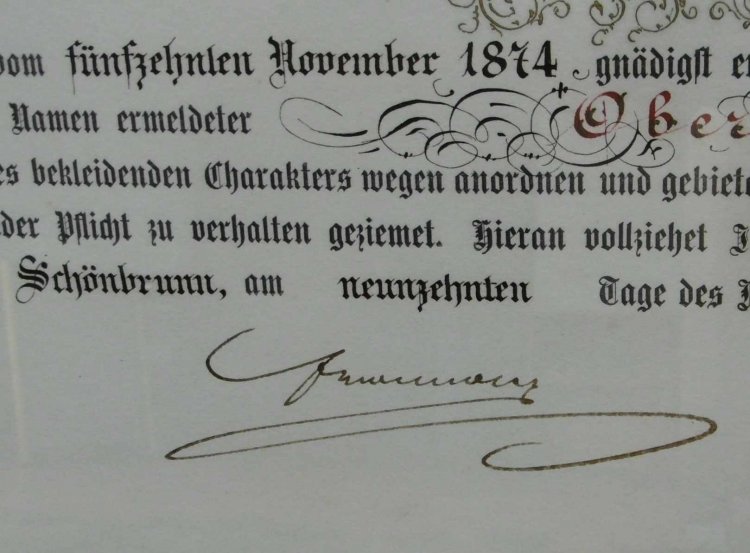 vom fünfzehnten November 1874 gnädigst
Namen ermeldeter Ober
bekleidenden Charakters wegen anordnen und gebiete
der Pflicht zu verhalten geziemet. Hieran vollziehet
Schönbrunn, am neunzehnten Tage des